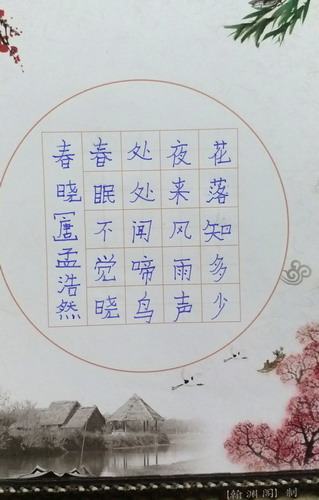 春晓[唐]孟浩然
春眠不觉晓
处处闻啼鸟
夜来风雨声
花落知多少
[翰渊阁]制